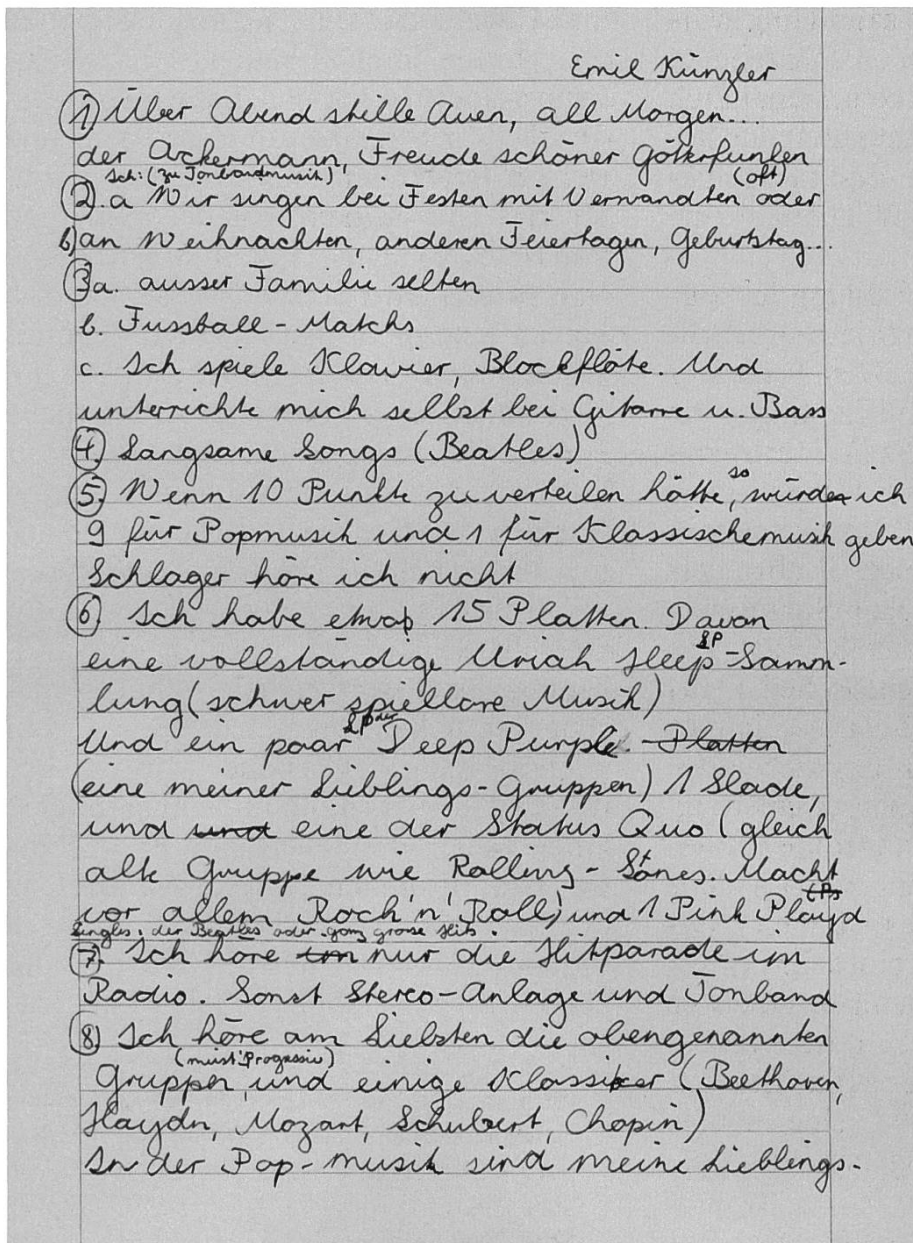 Emil Künzler
① Über Abend stille Auen, all Morgen...
der Ackermann, Freude schöner Götterfunken
Ich: (zu Tonbandmusik) (oft)
② a Wir singen bei Festen mit Verwandten oder
b) an Weihnachten, anderen Feiertagen, Geburtstag...
③a. ausser Familie selten
b. Fussball-Matchs
c. Ich spiele Klavier, Blockflöte. Und
unterrichte mich selbst bei Gitarre u. Bass
④ Langsame Songs (Beatles)
⑤ Wenn 10 Punkte zu verteilen hätte, so würde ich
9 für Popmusik und 1 für Klassischemusik geben
Schlager höre ich nicht
⑥ Ich habe etwa 15 Platten. Davon
eine vollständige Uriah Heep LP-Samm-
lung (schwer spielbare Musik)
Und ein paar LP der Deep Purple. Platten
(eine meiner Lieblings-Gruppen) 1 Slade,
und und eine der Status Quo (gleich
alte Gruppe wie Rolling-Stones. Macht
vor allem Rock'n'Roll) und 1 Pink Ployd LPs
Singles: der Beatles oder ganz grosse Hits.
⑦. Ich höre im nur die Hitparade im
Radio. Sonst Stereo-Anlage und Tonband
⑧ Ich höre am Liebsten die obengenannten
Gruppen (meist Progessiv) und einige Klassiker (Beethoven,
Haydn, Mozart, Schubert, Chopin)
In der Pop-musik sind meine Lieblings-